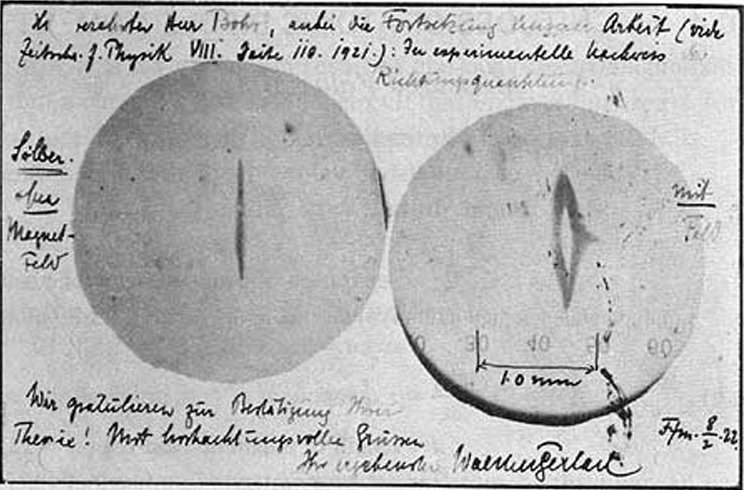 verehrter Herr Bohr, anbei die Fortsetzung unserer Arbeit (vide
Zeitschr. f. Physik VIII. Seite 110. 1921.): Der experimentelle Nachweis
Richtungsquantelung.
Silber.
ohne
Magnet-
Feld
mit
Feld
30 40 50 60
1.0 mm
Wir gratulieren zur Bestätigung Ihrer
Theorie! Mit hochachtungsvollen Grüssen
Ihr ergebenster Walther Gerlach.
Ffm. 8/2. 22.